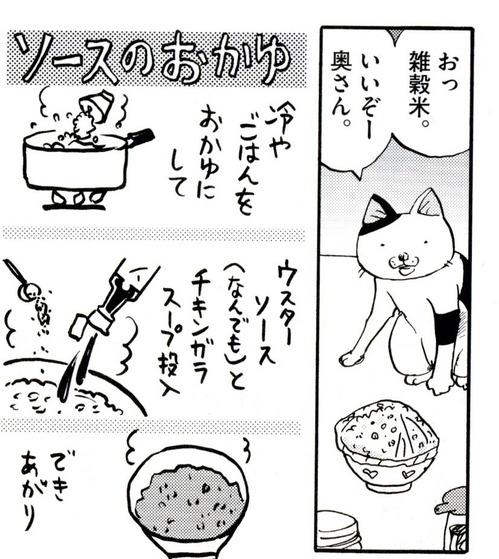 おっ
雑穀米。
いいぞー
奥さん。
ソースのおかゆ
冷や
ごはんを
おかゆに
して
ウスター
ソース
(なんでも)と
チキンガラ
スープ投入
でき
あがり